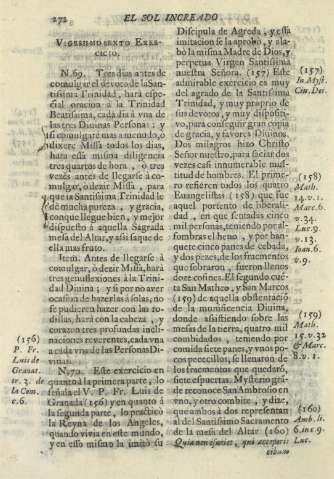 272 EL SOL INCREADO
VIGESIMOSEXTO EXER-
CICIO.
N.69. Tres dias antes de
comulgar el devoto de la San-
tissima Trinidad, hará espe-
cial oracion à la Trinidad
Beatissima, cada dia à vna de
las tres Divinas Personas; y
si comulgare mas à menudo, ò
dixere Missa todos los dias,
hara essa misma diligencia
tres quartos de hora, ò tres
vezes antes de llegarse à co-
mulgar, ò dezir Missa, para
que la Santissima Trinidad le
dè mucha pureza, y gracia,
con que llegue bien, y mejor
dispuesto à aquella Sagrada
mesa del Altar, y assi saque de
ella mas fruto.
Item. Antes de llegarse à
comulgar, ò dezir Missa, hará
tres genuflexiones à la Trini-
dad Divina; y si por no aver
ocasion de hazerlas à solas, no
se pudieren hazer con las ro-
dillas, hará con la cabeza, y
corazon tres profundas incli-
naciones reverentes, cada vna
à cada vna de las Personas Di-
vinas.
N.70. Este exercicio en
quanto à la primera parte, lo
señala el V. P. Fr. Luis de
Granada (156) y en quanto à
la segunda parte, lo practicò
la Reyna de los Angeles,
quando vivia en este mundo,
y en esso mismo la imitò su
(156)
P. Fr.
Luis de
Granat.
tr. 2. de
la Com.
c.6.
Discipula de Agreda, y essa
imitacion se la aprobò, y ala-
bò la misma Madre de Dios, y
perpetua Virgen Santissima
nuestra Señora. (157) Este
admirable exercicio es muy
del agrado de la Santissima
Trinidad, y muy proprio de
sus devotos, y muy disposi-
vo, para conseguir gran copia
de gracia, y favores Divinos.
Dos milagros hizo Christo
Señor nuestro, para saciar dos
vezes casi innumerable mul-
titud de hombres. El prime-
ro refieren todos los quatro
Evangelistas (158) que fue
aquel portento de liberali-
dad, en que sentados cinco
mil personas, teniendo por al-
fombra el heno, y por ban-
quete cinco panes de cebada,
y dos pezes, de los fragmentos
que sobraron, fueron llenos
doze cofines. El segundo cuen-
ta San Matheo, y San Marcos
(159) de aquella obstentacion
de la munificencia Divina,
donde assistiendo sobre las
mesas de la tierra, quatro mil
combidados, teniendo por
comida siete panes, y vnos po-
cos pezecillos, se llenaron de
los fragmentos que quedarõ,
siete espuertas. Mysterio gran-
de reconoce San Ambrosio en
vno, y otro combite, y dize,
que ambos à dos representan
al del Santissimo Sacramento
de la mesa del Altar (160)
(157)
In Myst.
Ciu. Dei.
(158)
Math.
14.v.1.
Marc.6.
v.34.
Luc.9.
v.13.
Ioan.6.
v.9.
(159)
Math.
15.v.32
& Marc.
8.v.1.
(160)
Amb. li.
6. in c.9.
Luc.